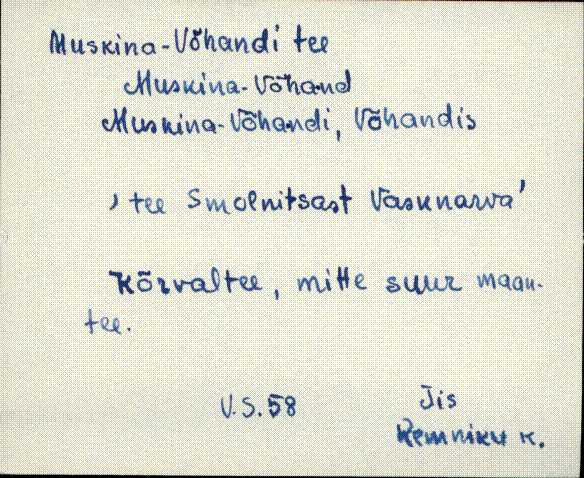 Muskina-Võhandi tee
Muskina-Võhand
Muskina-Võhandi, Võhandis
, tee Smolnitsast Vasknarva'
Kõrvaltee, mitte suur maan-
tee.
V.S. 58
Jis
Remniku k.